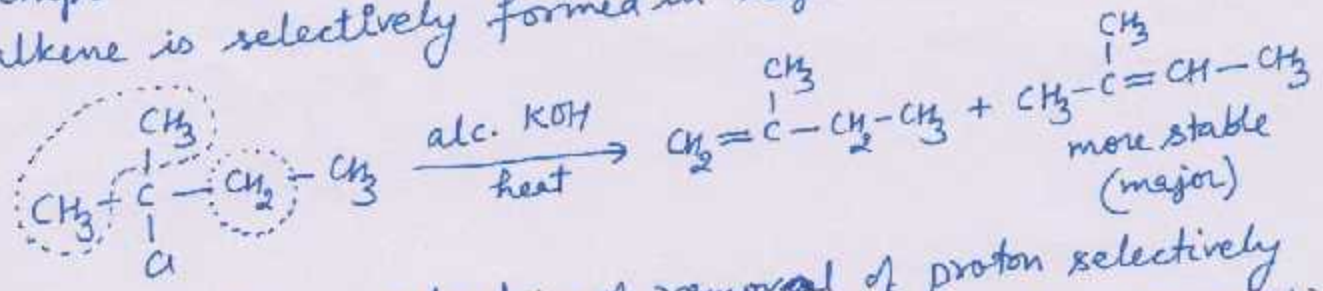 alkene is selectively formed in
CH3
CH3 - C - CH2 - CH3
Cl
alc. KOH
heat
CH3
CH2 = C - CH2 - CH3 + CH3 - C = CH - CH3
CH3
more stable
(major)
removal of proton selectively